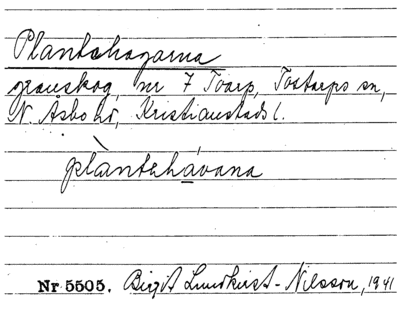 Plantehagarna
granskog, nr 7 Toarp, Tostarps sn,
N. Åsbo hd, Kristianstads l.
plàntehávana
Nr 5505. Birgit Lundkvist-Nilsson, 1941